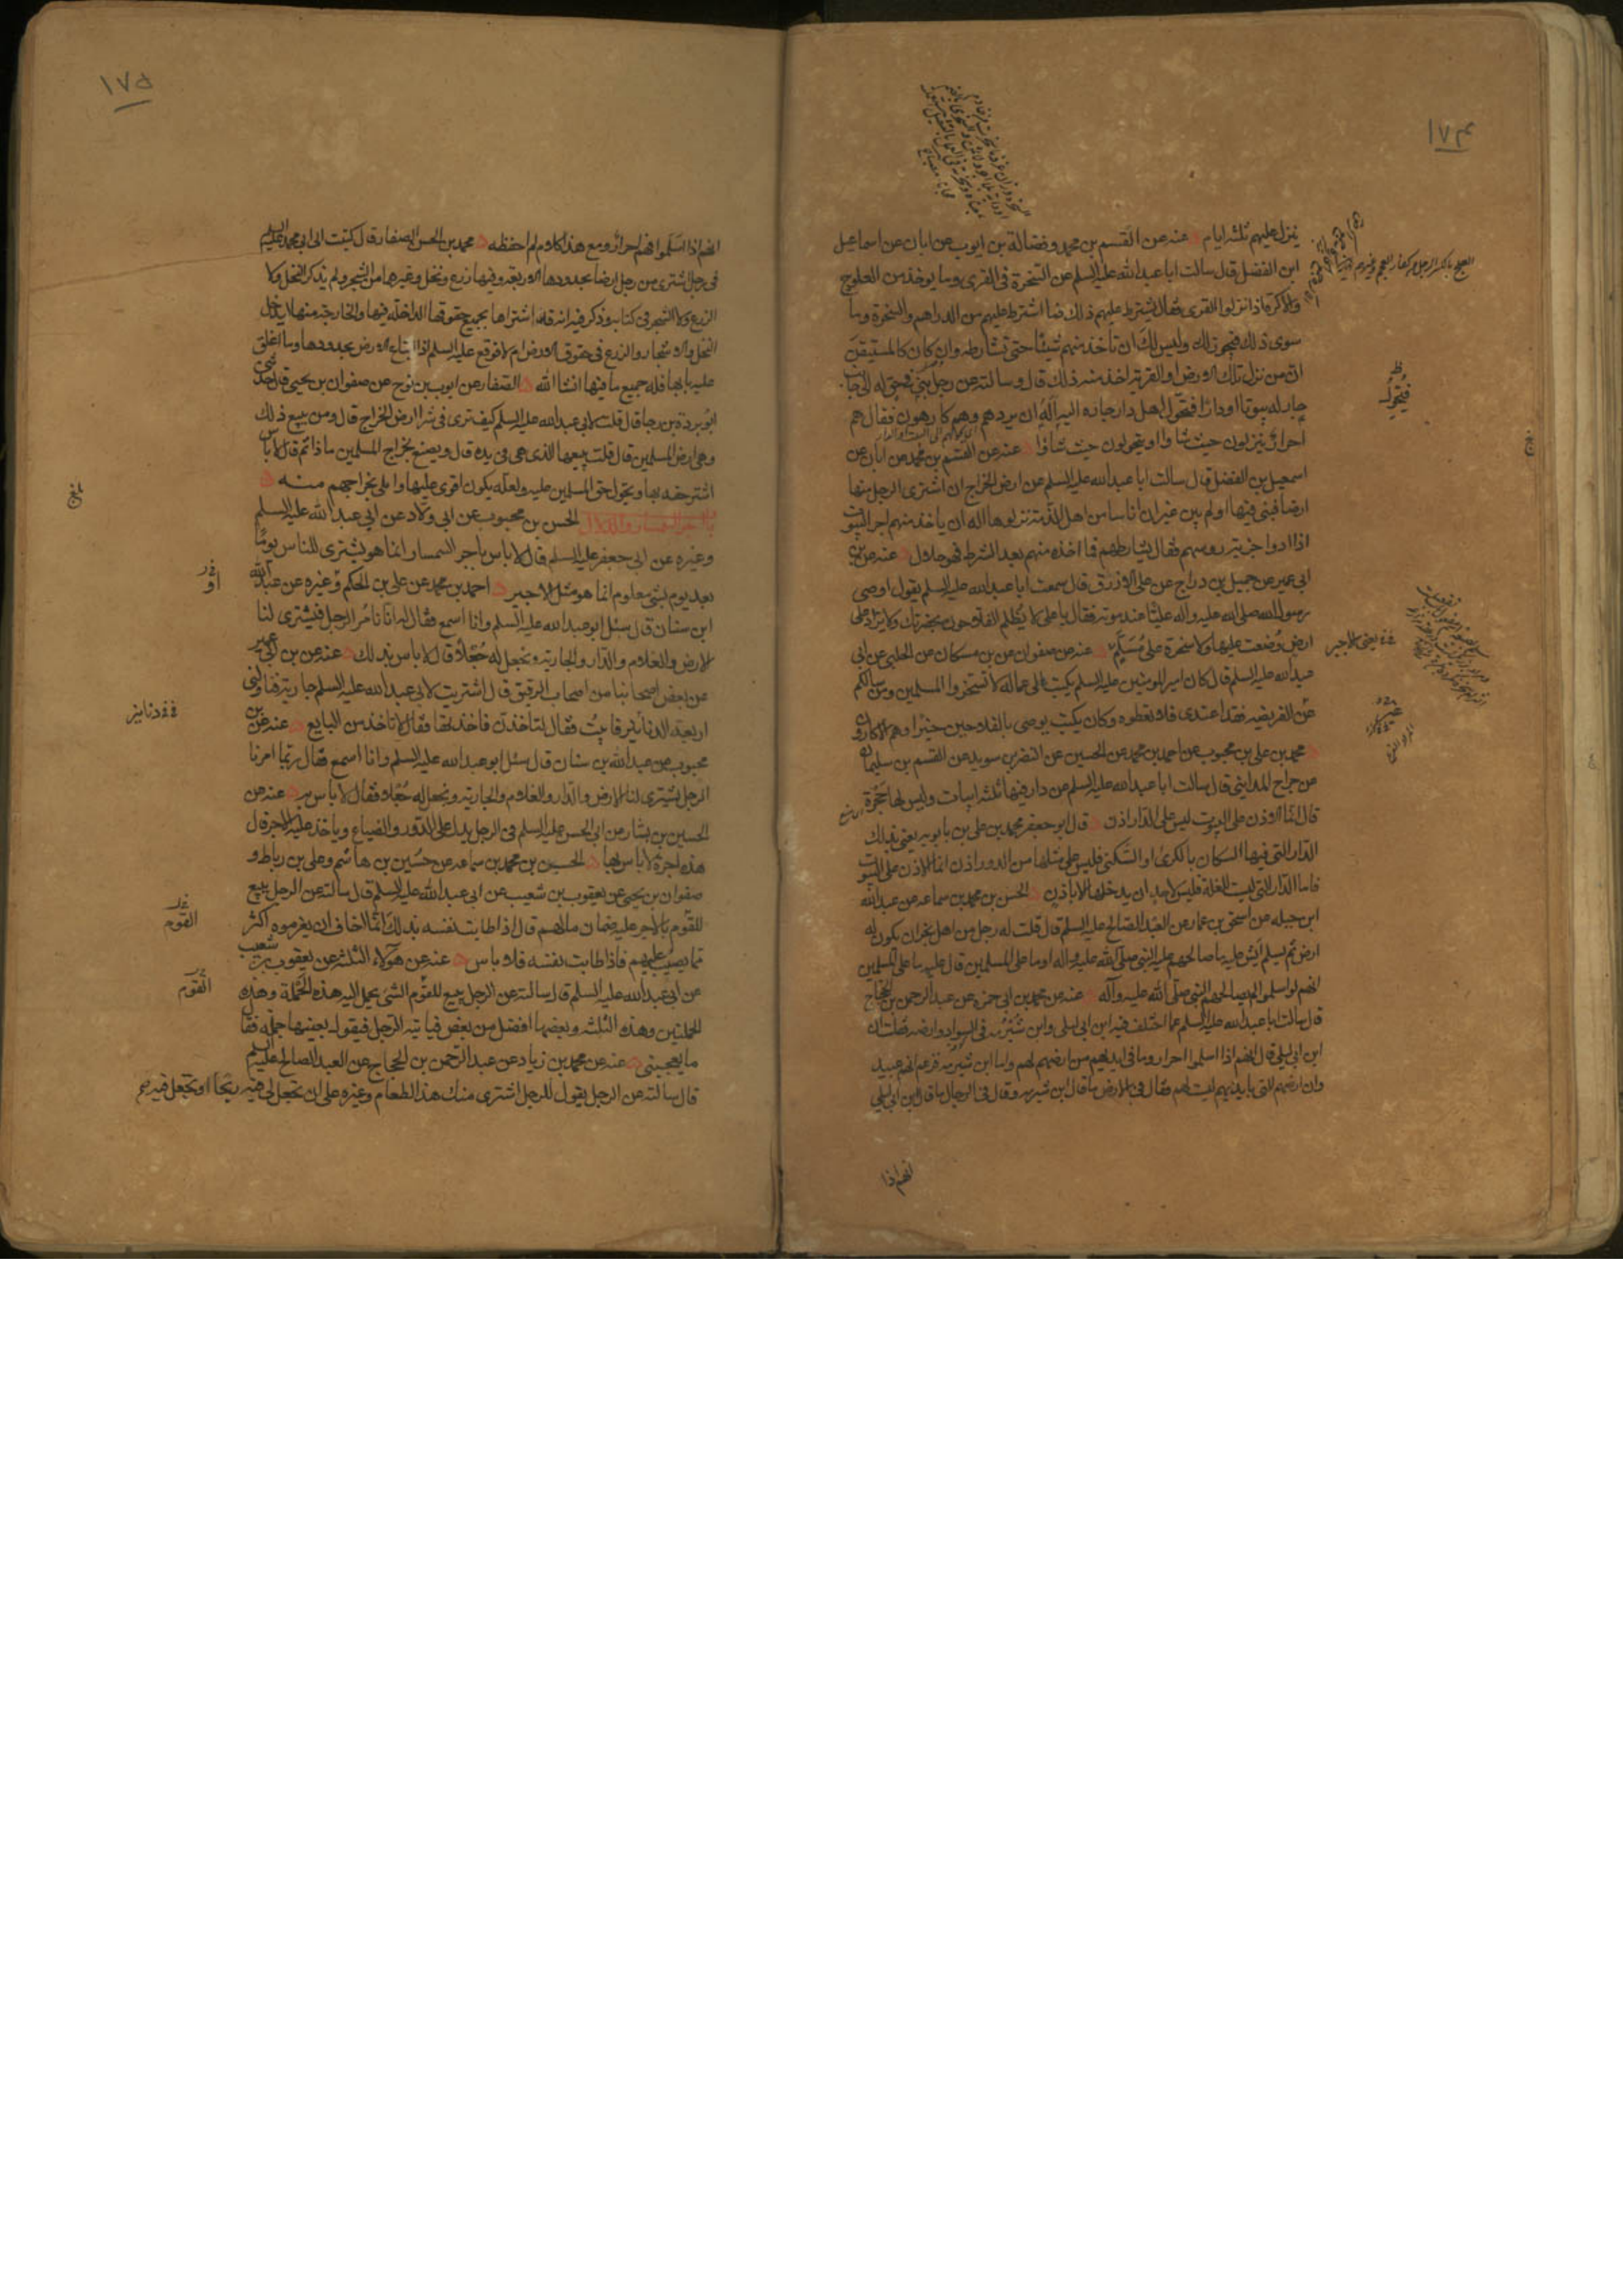 ١٧٤
ينزل عليهم ثلثه ايام عنه عن القسم بن محمد وفضالة بن ايوب عن ابان عن اسماعيل
ابن الفضل قال سالت ابا عبدالله عليه السلم عن السخرة فى القرى وما يوخذ من العلوج
والاكرة اذا نزلوا القرى فقال يشترط عليهم ذلك فما اشترط عليهم من الدراهم والسخرة وما
سوى ذلك فيجوز لك وليس لك ان تاخذ منهم شيئا حتى تشارطهم وان كان كالمستيقن
ان من نزل تلك الارض او القرية اخذ منه ذلك قال وسالته عن رجل بنى فى حق له الى جانب
جار له بيوتا او دارا فتحول اهل دار جاره اليه اله ان يردهم وهم كارهون فقال هم
احرار ينزلون حيث شاوا ويتحولون حيث شاوا عنه عن القسم بن محمد عن ابان عن
اسمعيل بن الفضل قال سالت ابا عبدالله عليه السلم عن ارض الخراج ان اشترى الرجل منها
ارضا فبنى فيها او لم يبن غير ان اناسا من اهل الذمة نزلوها اله ان ياخذ منهم اجر البيوت
اذا ادوا جزية روسهم فقال يشارطهم فما اخذ منهم بعد الشرط فهو حلال عنه عن بن
ابى عمير عن جميل بن دراج عن على الازرق قال سمعت ابا عبدالله عليه السلم يقول اوصى
رسول الله صلى الله عليه واله عليا عند موته فقال يا على لا يظلم الفلاحون بحضرتك ولا يزاد على
ارض وضعت عليها ولا سخرة على مسلم عنه عن صفوان عن بن مسكان عن الحلبى عن ابى
عبدالله عليه السلم قال كان امير المومنين عليه السلم يكتب الى عماله لا تسخروا المسلمين ومن سالكم
عن الفريضه فقد اعتدى فلا تعطوه وكان يكتب يوصى بالفلاحين خيرا وهم الاكارون
محمد بن على بن محبوب عن احمد بن محمد عن الحسين عن النضر بن سويد عن القسم بن سليمان
عن جراح المداينى قال سالت ابا عبدالله عليه السلم عن دار فيها ثلثه ابيات وليس لها حجرة
قال انما الاذن على البيوت ليس على الدار اذن قال ابو جعفر محمد بن على بن بابويه يعنى بذلك
الدار التى فيها السكان بالكرى او السكنى فليس على مثلها من الدور اذن انما الاذن على البيوت
فاما الدار التى ليست للغلة فليس لاحد ان يدخلها الا باذن الحسن بن محمد بن سماعه عن عبدالله
ابن جبله عن اسحق بن عمار عن العبد الصالح عليه السلم قال قلت له رجل من اهل نجران يكون له
ارض ثم يسلم ايش عليه ما صالحهم عليه النبى صلى الله عليه واله او ما على المسلمين قال عليه ما على المسلمين
انهم لو اسلموا لم يصالحهم النبى صلى الله عليه وآله عنه عن محمد بن ابى حمزه عن عبد الرحمن بن الحجاج
قال سالت ابا عبدالله عليه السلم عما اختلف فيه ابن ابى ليلى وابن شبرمه فى السواد وارضه فقلت ان
ابن ابى ليلى قال انهم اذا اسلموا احرار وما فى ايديهم من ارضهم لهم واما ابن شبرمه فزعم انهم عبيد
وان ارضهم التى بايديهم ليست لهم فقال فى الارض ما قال ابن شبرمه وقال فى الرجال ما قال ابن ابى ليلى
انهم اذا
فيتحول
يعنى الاجير
١٧٥
انهم اذا اسلموا انهم احرار ومع هذا كلام لم احفظه محمد بن الحسن الصفار قال كتبت الى ابى محمد عليه السلم
فى رجل اشترى من رجل ارضا بحدودها الاربعه وفيها زرع ونخل وغيرهما من الشجر ولم يذكر النخل ولا
الزرع ولا الشجر فى كتابه وذكر فيه انه قد اشتراها بجميع حقوقها الداخله فيها والخارجة منها ايدخل
النخل والاشجار والزرع فى حقوق الارض ام لا فوقع عليه السلم اذا ابتاع الارض بحدودها وما اغلق
عليه بابها فله جميع ما فيها انشا الله الصفار عن ايوب بن نوح عن صفوان بن يحيى قال حدثنى
ابو بردة بن رجا قال قلت لابى عبدالله عليه السلم كيف ترى فى شرا ارض الخراج قال ومن يبيع ذلك
وهى ارض المسلمين قال قلت يبيعها الذى هى فى يده قال ويصنع بخراج المسلمين ماذا ثم قال لا باس
اشتر حقه بها ويحول حق المسلمين عليه ولعله يكون اقوى عليها واملى بخراجهم منه
باب اجر السمسار والدلال الحسن بن محبوب عن ابى ولاد عن ابى عبدالله عليه السلم
وغيره عن ابى جعفر عليه السلم قال لا باس باجر السمسار انما هو يشترى للناس يوما
بعد يوم بشى معلوم انما هو مثل الاجير احمد بن محمد عن على بن الحكم وغيره عن عبدالله
ابن سنان قال سئل ابو عبدالله عليه السلم وانا اسمع فقال له انا نامر الرجل فيشترى لنا
الارض والغلام والدار والجارية ونجعل له جعلا قال لا باس بذلك عنه عن بن ابى عمير
عن بعض اصحابنا من اصحاب الرقيق قال اشتريت لابى عبدالله عليه السلم جارية فناولنى
اربعة الدنانير فابيت فقال لتاخذن فاخذتها فقال لا تاخذ من البايع عنه عن بن
محبوب عن عبدالله بن سنان قال سئل ابو عبدالله عليه السلم وانا اسمع فقال ربما امرنا
الرجل يشترى لنا الارض والدار والغلام والجارية ونجعل له جعلا فقال لا باس به عنه عن
الحسين بن بشار عن ابى الحسن عليه السلم فى الرجل يدل على الدور والضياع وياخذ عليه الاجر قال
هذه اجرة لا باس بها الحسن بن محمد بن سماعه عن حسين بن هاشم وعلى بن رباط و
صفوان بن يحيى عن يعقوب بن شعيب عن ابى عبدالله عليه السلم قال سالته عن الرجل يبيع
للقوم بالاجر عليه ضمان مالهم قال اذا طابت نفسه بذلك انما اخاف ان يغرموه اكثر
مما يصيب عليهم فاذا طابت نفسه فلا باس عنه عن هولاء الثلثه عن يعقوب بن شعيب
عن ابى عبدالله عليه السلم قال سالته عن الرجل يبيع للقوم الشى يحمل اليه هذه الحملة وهذه
الحملتين وهذه الثلثه وبعضها افضل من بعض فياتيه الرجل فيقول بعنيها جملة فقا
ما يعجبنى عنه عن محمد بن زياد عن عبد الرحمن بن الحجاج عن العبد الصالح عليه السلم
قال سالته عن الرجل يقول للرجل اشترى منك هذا الطعام وغيره على ان تجعل لى فيه ربحا او تجعل فيه
بلغ
دنانير
القوم
القوم